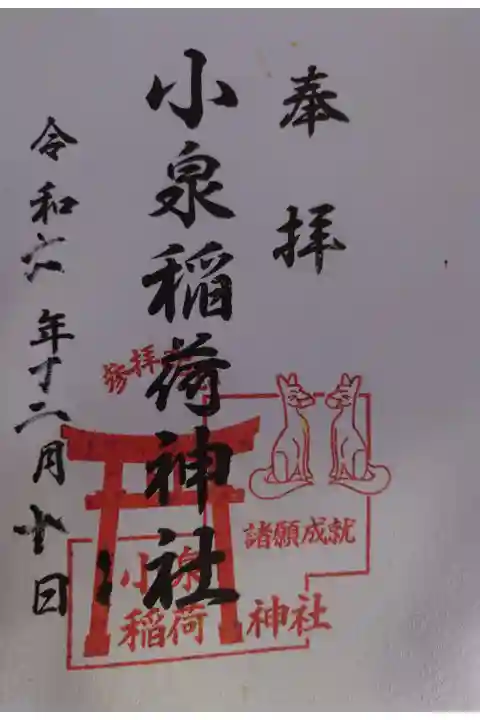 奉拝
小泉稲荷神社
令和六年十二月十日
参拝
諸願成就
小泉
稲荷神社